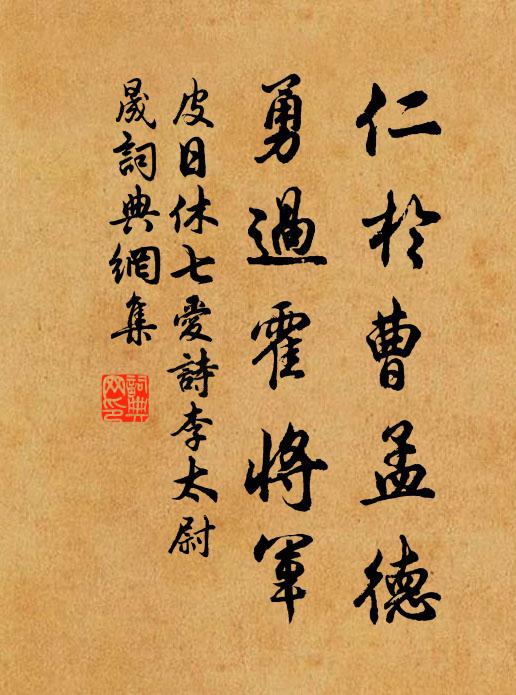 仁於曹孟德
勇過霍將軍
皮日休七愛詩李太尉
晟詞典網集
詞典網印